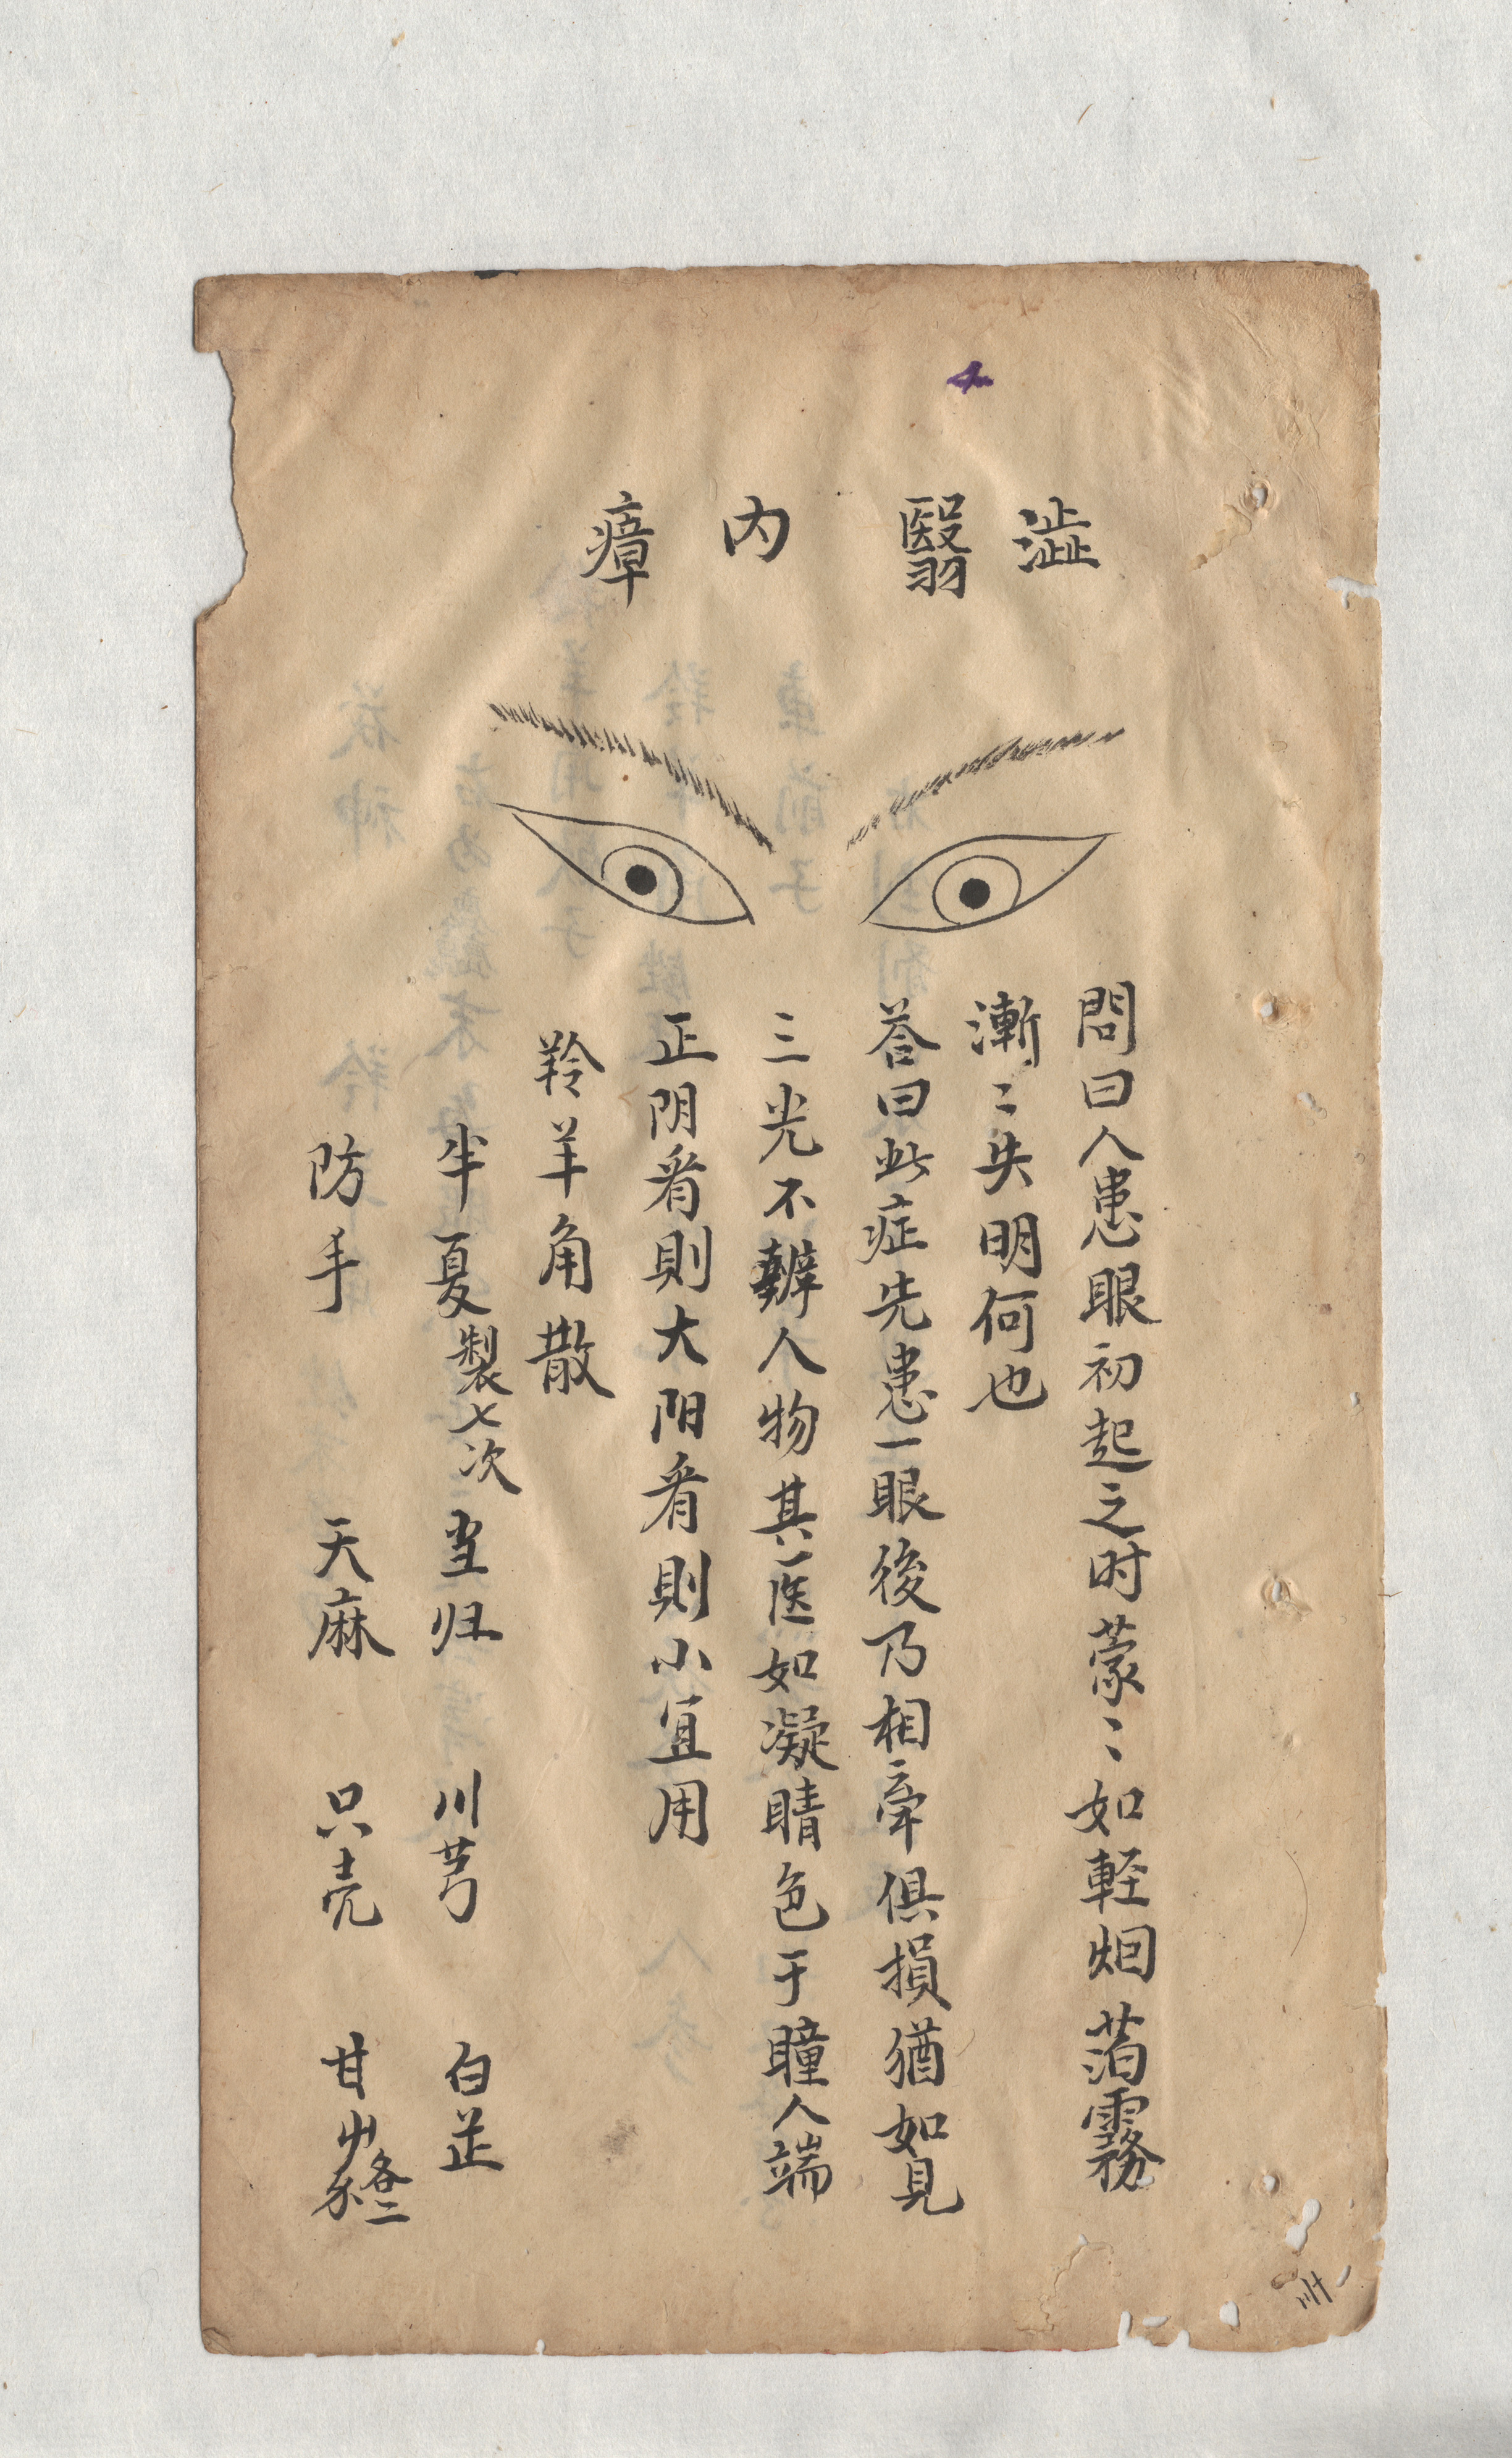 澁翳內瘴
問曰人患眼初起之时蒙〻如輕烟萡霧
漸〻失明何也
荅曰此症先患一眼後乃相牽俱損猶如見
三光不辨人物其医如凝睛色于瞳人端
正阴看則大阳看則小宜用
羚羊角散
半夏製七次 当归 川芎 白芷
防手 天麻 只壳 甘草各二